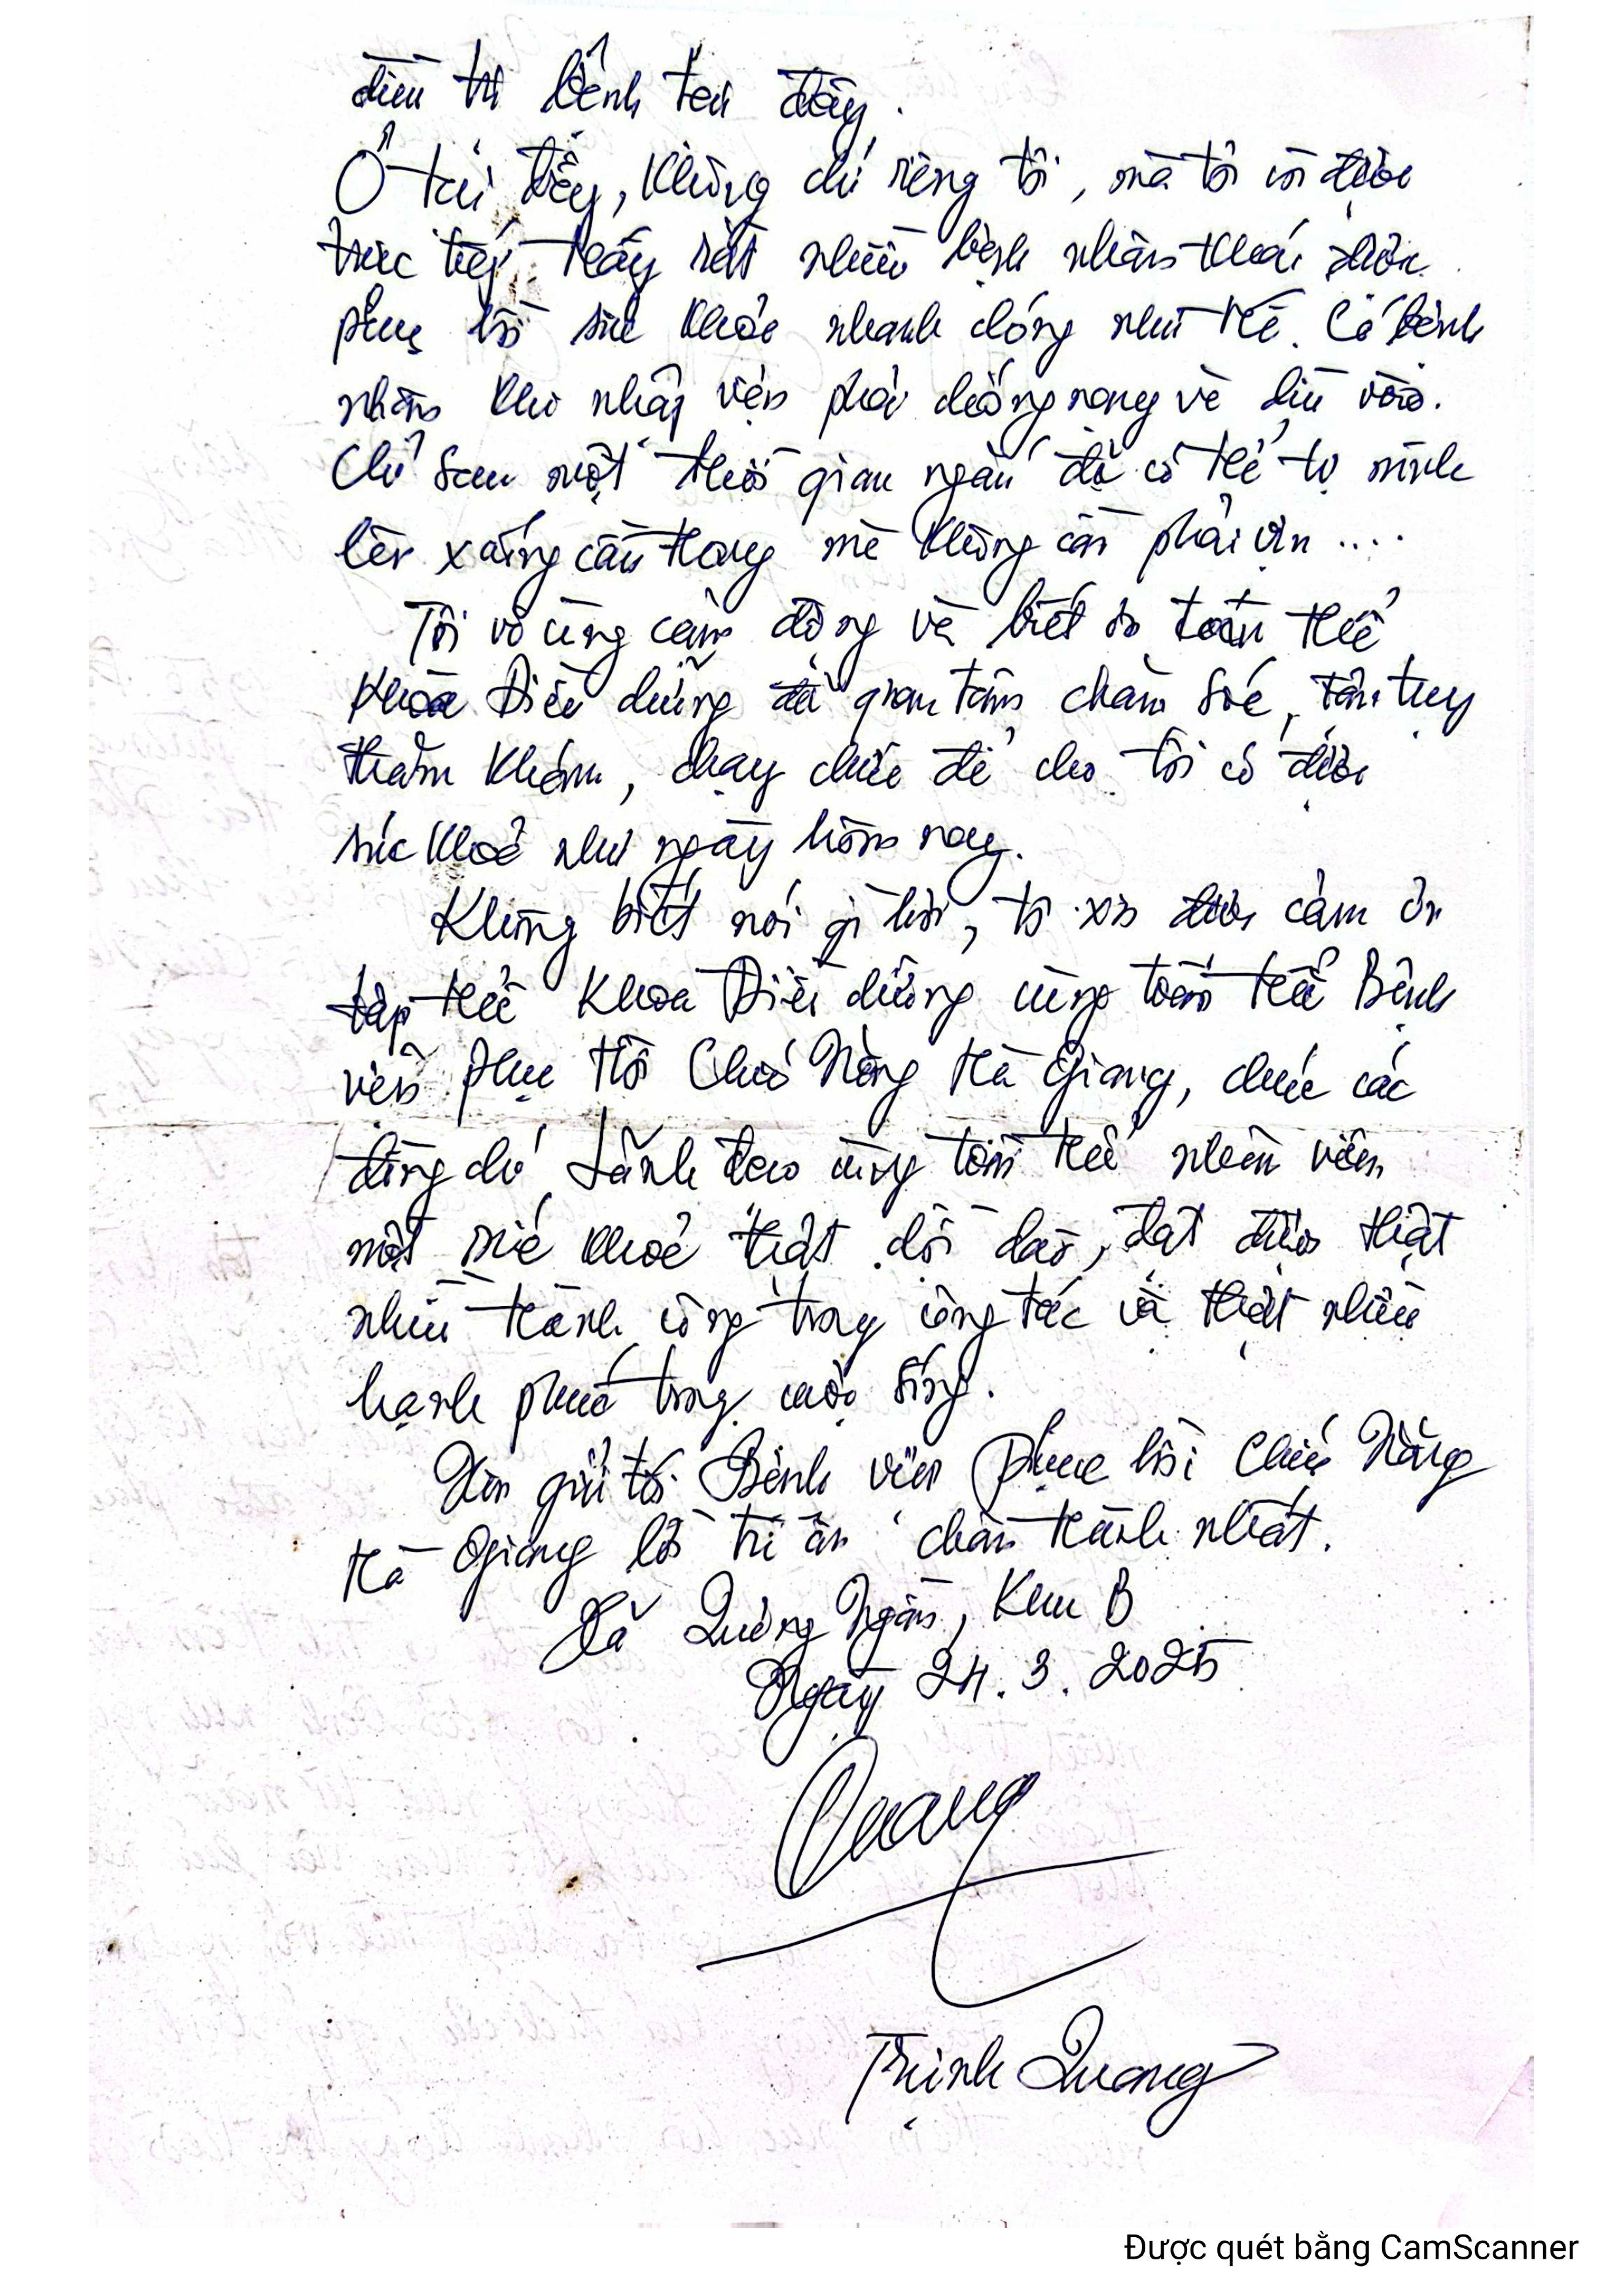 điều trị bệnh tại đây.
Ở tại đây, không chỉ riêng tôi, mà tôi còn được
trực tiếp thấy rất nhiều bệnh nhân khác được
phục hồi sức khỏe nhanh chóng như thế. Có bệnh
nhân khi nhập viện phải chống nạng và dìu vào.
Chỉ sau một thời gian ngắn đã có thể tự mình
lên xuống cầu thang mà không cần phải vịn ....
Tôi vô cùng cảm động và biết ơn toàn thể
khoa Điều dưỡng đã quan tâm chăm sóc, tận tụy
thăm khám, chạy chữa để cho tôi có được
sức khoẻ như ngày hôm nay.
Không biết nói gì hơn, tôi xin được cảm ơn
tập thể khoa Điều dưỡng cùng toàn thể Bệnh
viện Phục Hồi Chức Năng Hà Giang, chúc các
đồng chí Lãnh đạo cùng toàn thể nhân viên
một sức khoẻ thật dồi dào, đạt được thật
nhiều thành công trong công tác và thật nhiều
hạnh phúc trong cuộc sống.
Xin gửi tới Bệnh viện Phục hồi Chức Năng
Hà Giang lời tri ân chân thành nhất.
Xã Quảng Ngần, Khu B
Ngày 24.3.2025
Quang
Trịnh Quang
Được quét bằng CamScanner